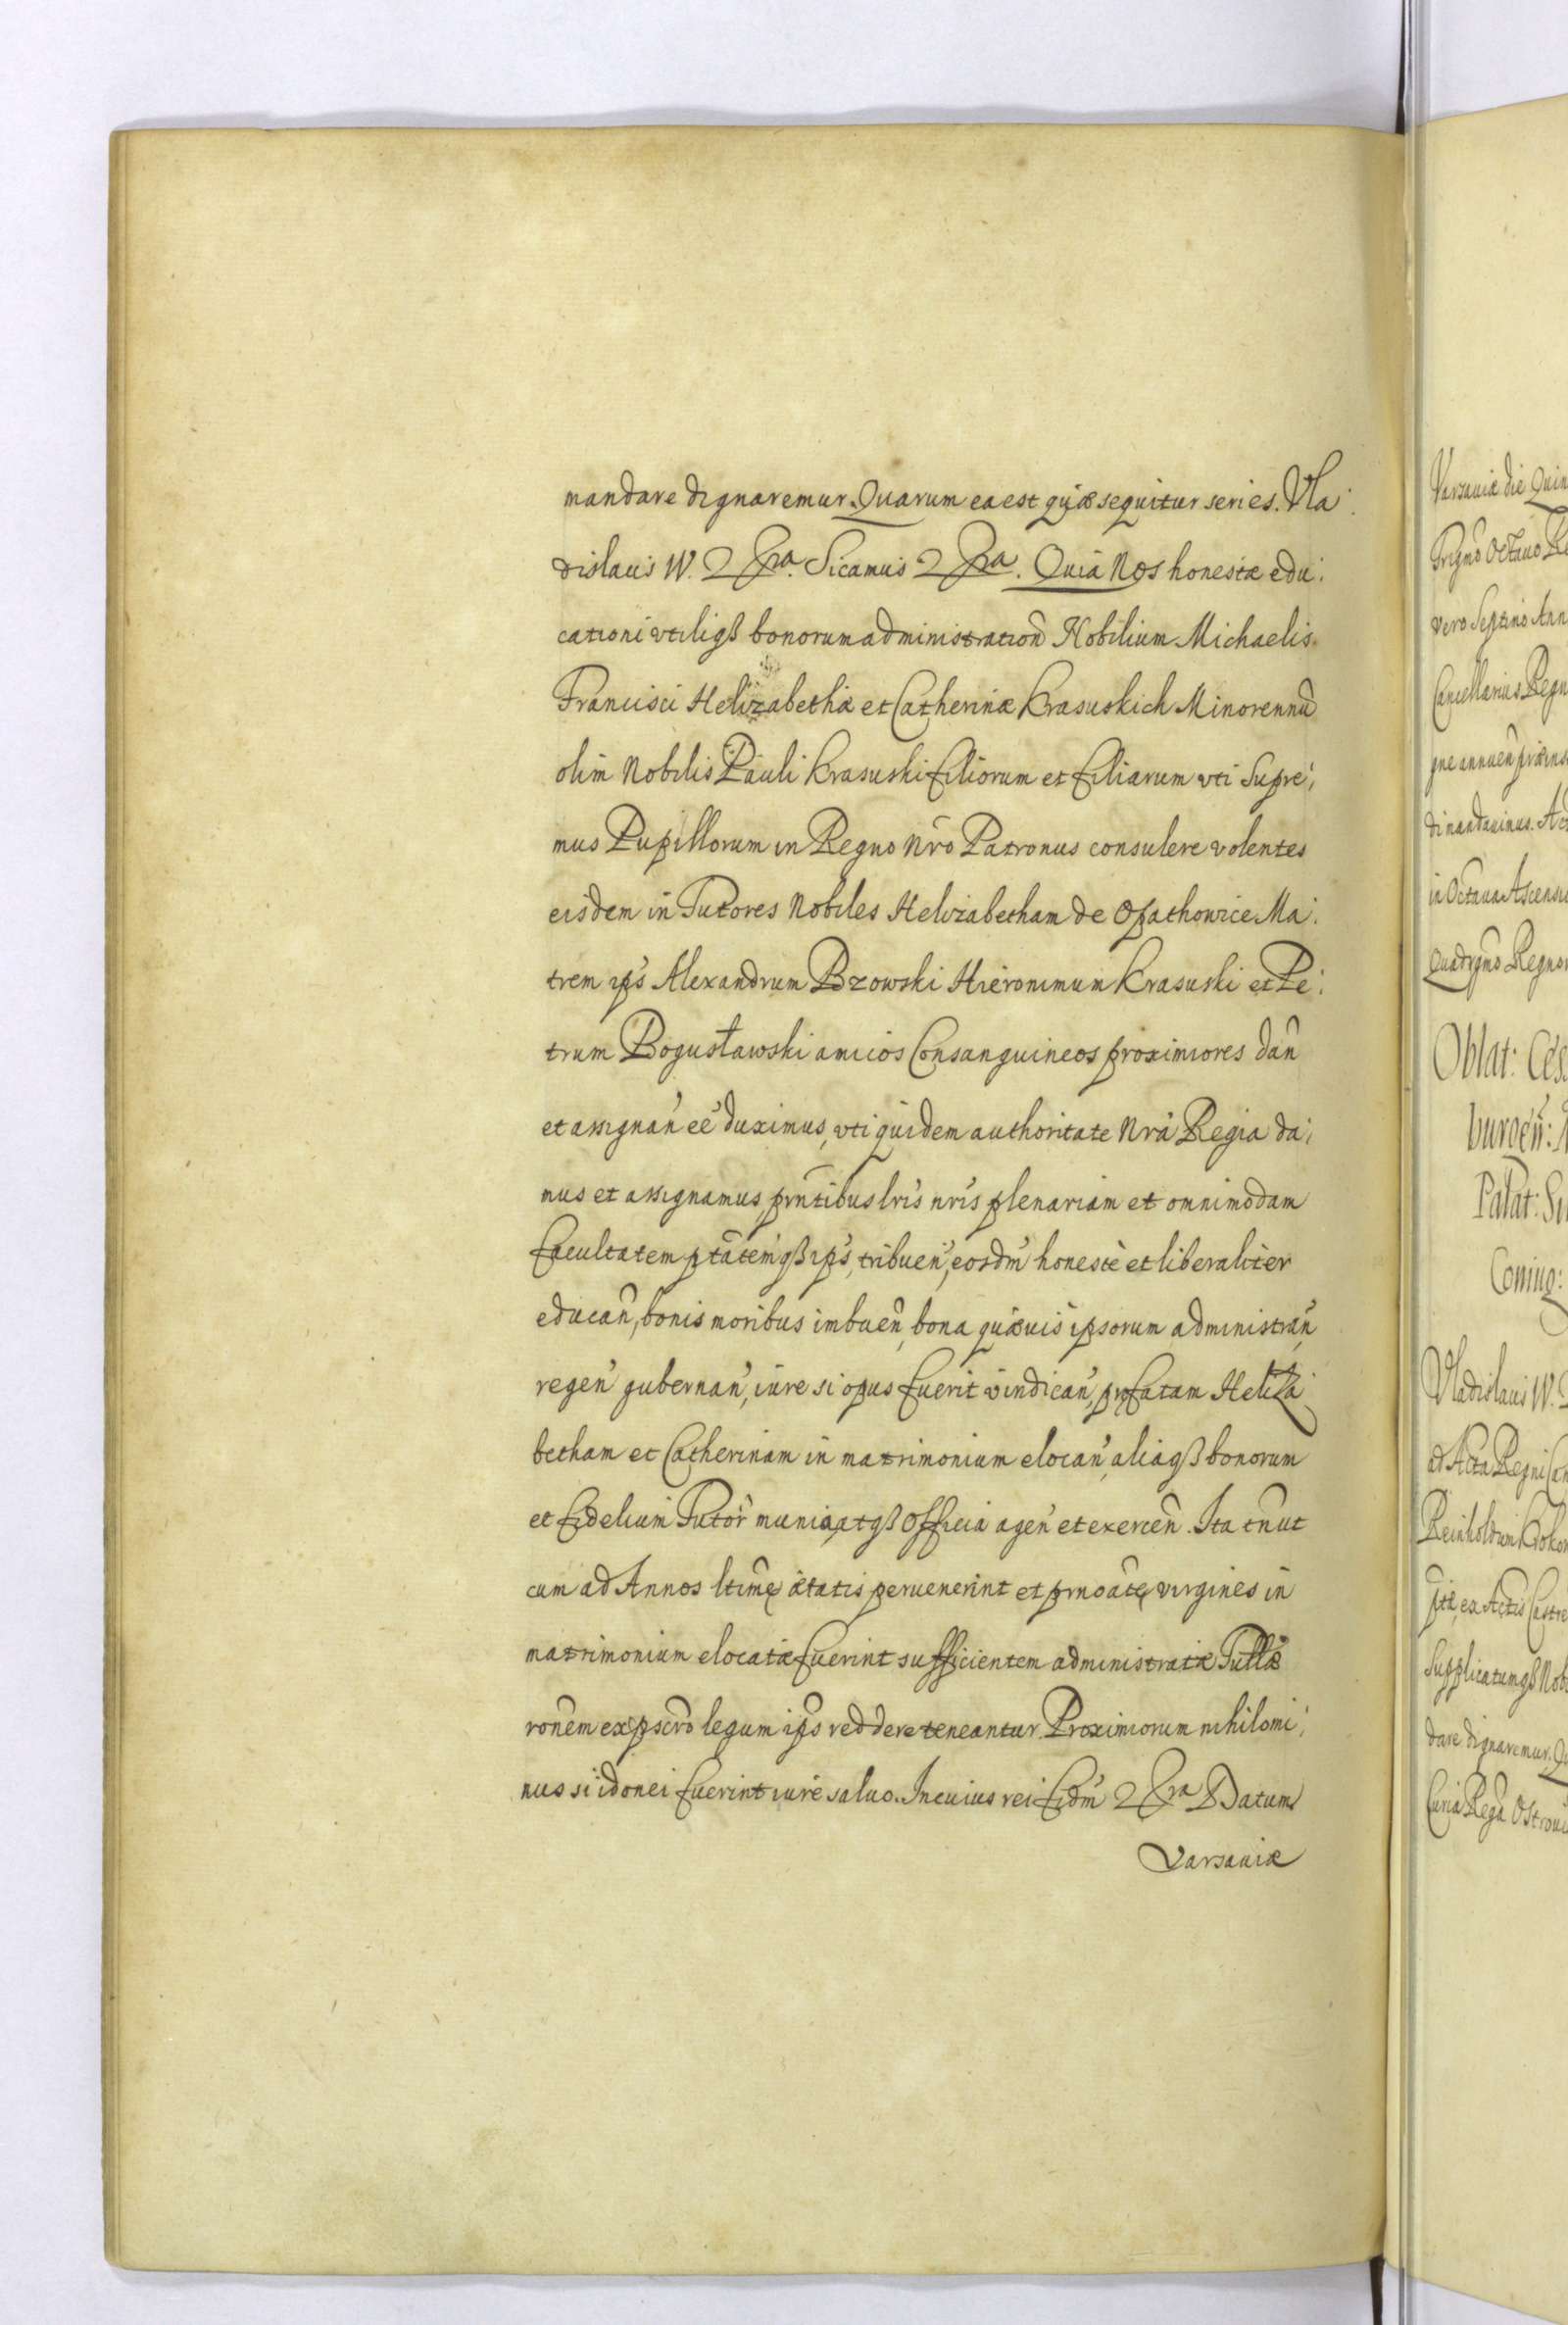 mandare dignaremur. Quarum ea est quæ sequitur series. Vla:
dislaus W. Sicamus Quia Nos honestæ edu:
cationi vtiliqꝫ bonorum administration̄ Nobilium Michaelis
Francisci Helizabethæ et Catherinæ Krasuskich Minorennū
olim Nobilis Pauli Krasuski filiorum et filiarum vti Supre:
mus Pupillorum in Regno Nr̄o Patronus consulere volentes
eisdem in Tutores Nobiles Helizabetham de Opathowice Ma:
trem ip̄s Alexandrum Bzowski Hieronimum Krasuski et Pe:
trum Bogusławski amicos Consanguineos proximiores dan̄
et assignan̄ eē duximus, vti quidem authoritate Nrā Regia da:
mus et assignamus prn̄tibus lrīs nrīs plenariam et omnimodam
facultatem ptātemqꝫ ip̄s, tribuen̄, eosdm̄ honestè et liberaliter
educan̄, bonis moribus imbuen̄, bona quæuis ipsorum administran̄,
regen̄ gubernan̄, iure si opus fuerit vindican̄, prfatam Heliza:
betham et Catherinam in matrimonium elocan̄, aliaqꝫ bonorum
et fidelium Tutor̄ munia, atqꝫ officia agen̄ et exercen̄. Ita tn̄ ut
cum ad Annos ltīmę ætatis peruenerint et prnoātę virgines in
matrimonium elocatæ fuerint sufficientem administratæ Tutlæ
ronem ex pscrō legum ip̄s reddere teneantur. Proximiorum nihilomi:
nus si idonei fuerint iure saluo. In cuius rei fidm̄ Datum
Varsauiæ
Varsauiæ die Quin
Trigmō Octauo Re
vero Septimo Ann
Cancellarius Regn
di mandauimus. Ac
in Octaua Ascensi
Quadrgmō Regno
Oblat:
Palat:
Coniug:
Vladislaus W.
ad Acta Regni Can
ex Actis Castre
Supplicatumqꝫ Nob
dare dignaremur. Q
Curia Regā Ostrou